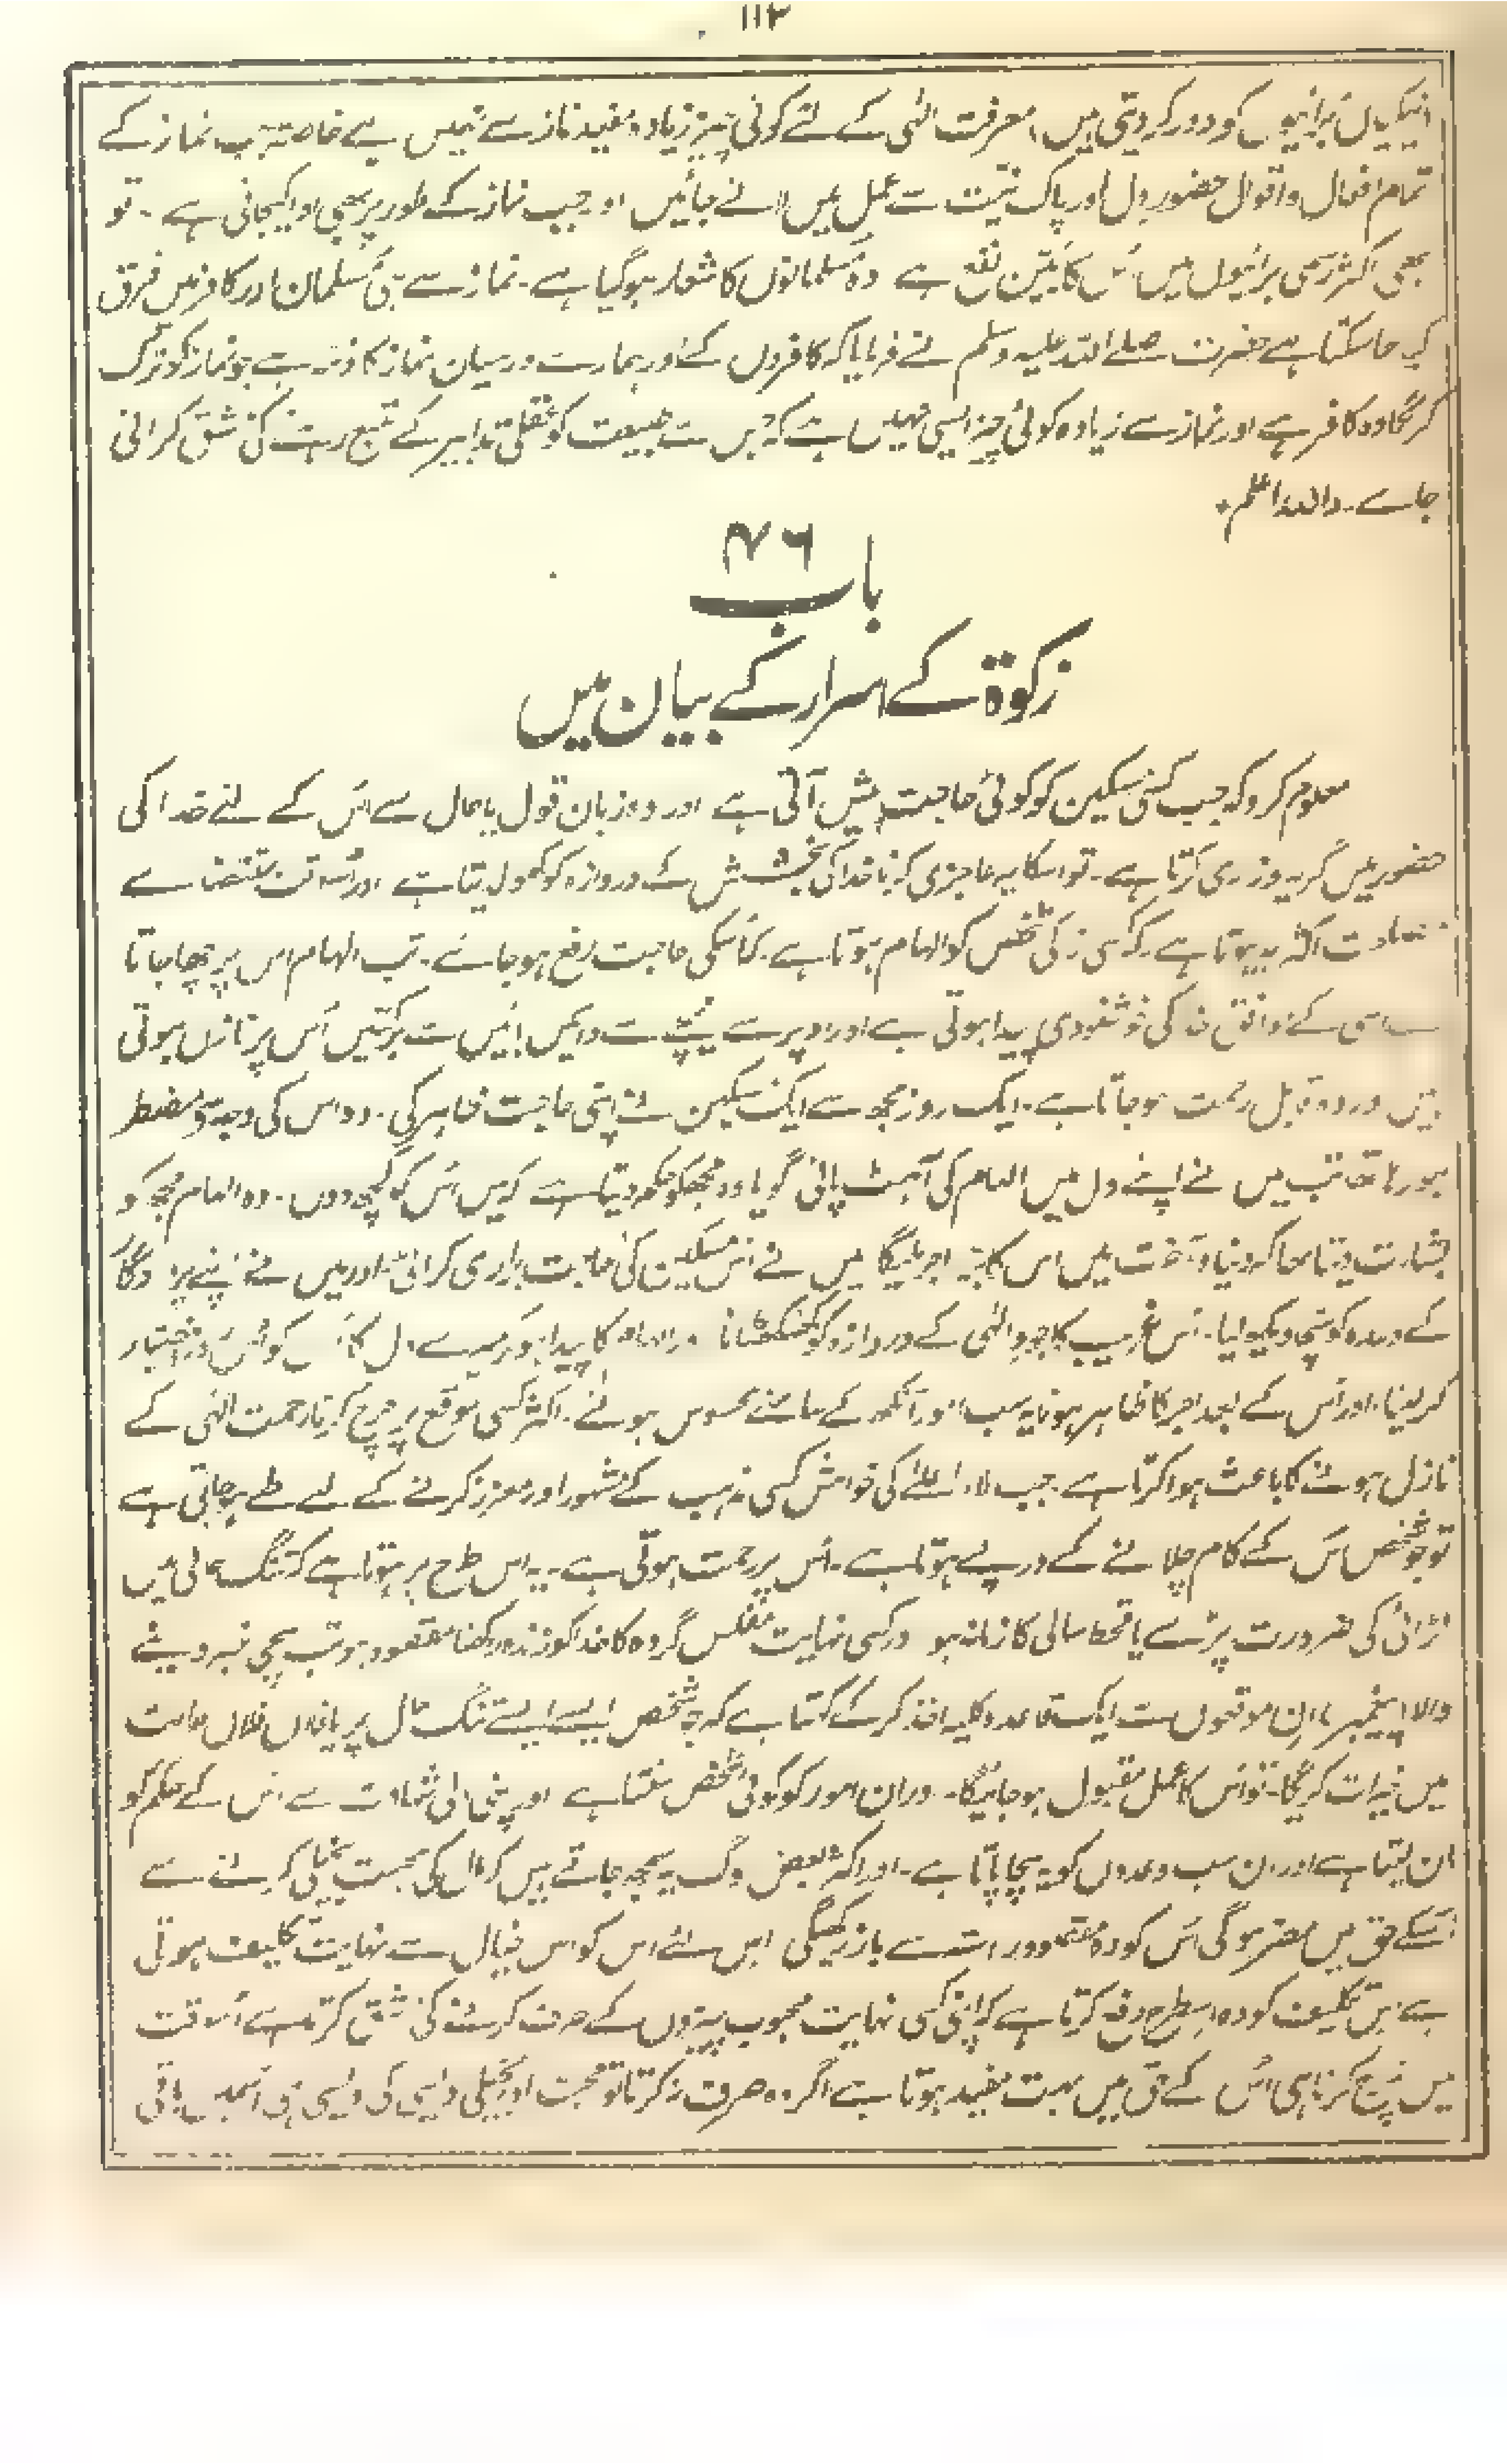 ۱۱۳
نیکیاں برائیوں کو دور کر دیتی ہیں، معرفت الٰہی کے لئے کوئی چیز زیادہ مفید نماز سے نہیں ہے خاصۃ جب نماز کے
تمام افعال و اقوال حضور دل اور پاک نیت سے عمل میں لائے جائیں اور جب نماز کے طور پر بھی ادا کیجاتی ہے۔ تو
بھی اکثر رسمی برائیوں میں اس کا بین نفع ہے وہ مسلمانوں کا شعار ہو گیا ہے۔ نماز سے ہی مسلمان اور کافر میں فرق
کیا جا سکتا ہے حضرت صلے اللہ علیہ وسلم نے فرمایا کہ کافروں کے اور ہمارے درمیان نماز کا فرق ہے جو نماز کو ترک
کریگا وہ کافر ہے اور نماز سے زیادہ کوئی چیز ایسی نہیں ہے کہ جس سے طبیعت کو عقلی تدابیر کے تتبع رہنے کی مشق کرائی
جاے۔ واللہ اعلم۔
باب ۷۶
زکوۃ کے اسرار کے بیان میں
معلوم کرو کہ جب کسی مسکین کو کوئی حاجت پیش آتی ہے اور وہ زبان قول یا حال سے اس کے لئے خدا کی
حضور میں گریہ وزاری کرتا ہے۔ تو اسکا یہ عاجزی کرنا خدا کی بخشش کے دروازہ کو کھول دیتا ہے اور اسوقت مقتضاے
اکثر یہ ہوتا ہے۔ کہ کسی زکی شخص کو الہام ہوتا ہے۔ کہ اسکی حاجت رفع ہو جائے۔ جب الہام اس پر چھا جاتا
اسی کے موافق خدا کی خوشنودی پیدا ہوتی ہے اور اوپر سے نیچے سے دائیں بائیں سے برکتیں اس پر نازل ہوتی
ہیں اور وہ قابل رحمت ہو جاتا ہے۔ ایک روز مجھ سے ایک مسکین نے اپنی حاجت ظاہر کی۔ وہ اس کی وجہ سے مضطر
ہو رہا تھا تب میں نے اپنے دل میں الہام کی آہٹ پائی گویا وہ مجھکو حکم دیتا ہے کہ میں اس کو کچھ دوں۔ وہ الہام مجھ کو
بشارت دیتا تھا کہ دنیا و آخرت میں اس کا اجر ملیگا میں نے اس مسکین کی حاجت براری کرائی۔ اور میں نے اپنے پروردگار
کے وعدہ کو سچا دیکھ لیا۔ اس غریب کا جود الٰہی کے دروازہ کو کھٹکھٹانا اور الہام کا پیدا ہو کر میرے دل کا اس کو اختیار
کر لینا، اور اس کے بعد اجر کا ظاہر ہونا یہ سب امور آنکھ کے سامنے محسوس ہوئے۔ اکثر کسی موقع پر خرچ کرنا رحمت الٰہی کے
نازل ہونے کا باعث ہوا کرتا ہے۔ جب ملاء اعلےٰ کی خواہش کسی مذہب کے مشہور اور معزز کرنے کے لے طے ہو جاتی ہے
تو جو شخص اس کے کام چلانے کے درپے ہوتا ہے۔ اس پر رحمت ہوتی ہے۔ یہ اس طرح پر ہوتا ہے کہ تنگ حالی میں
لڑائی کی ضرورت پڑے یا قحط سالی کا زمانہ ہو اور کسی نہایت مفلس گروہ کا خدا کو زندہ رکھنا مقصود ہو تب سچی خبر دینے
والا (پیغمبر) ان موقعوں سے ایک قاعدہ کلیہ اخذ کر کے کہتا ہے کہ جو شخص ایسے ایسے تنگ حال پر یا فلاں فلاں حالت
میں خیرات کریگا۔ تو اس کا عمل مقبول ہو جائیگا۔ اور ان امور کو کوئی شخص سنتا ہے اور اپنی دلی شہادت سے اس کے حکم کو
مان لیتا ہے اور ان سب وعدوں کو یہ سچا پاتا ہے۔ اور اکثر بعض لوگ یہ سمجھ جاتے ہیں کہ مال کی محبت بخیلی کرنے سے
اسکے حق میں مضر ہو گی اس کو وہ مقصود راستے سے باز رکھیگی اس لئے اس کو اس خیال سے نہایت تکلیف ہوتی
ہے اس تکلیف کو وہ اسطرح دفع کرتا ہے کہ اپنی کسی نہایت محبوب چیزوں کے صرف کرنے کی مشق کرتا ہے اسوقت
میں خرچ کرنا ہی اس کے حق میں بہت مفید ہوتا ہے اگر وہ صرف نہ کرتا تو محبت اور بخیلی ویسی کی ویسی ہی اسمیں باقی